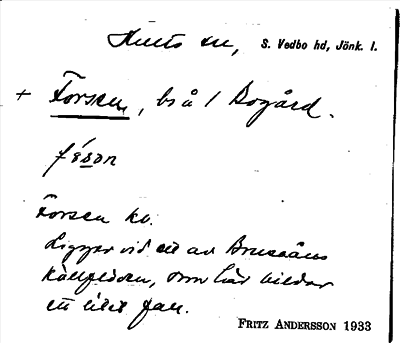 Hults sn, S. Vedbo hd, Jönk. l.
+ Forsen, bså / Bogård.
fó́sən
Forsen kv.
Ligger vid ett av Brusaåns
källflöden, som här bildar
ett litet fall.
FRITZ ANDERSSON 1933